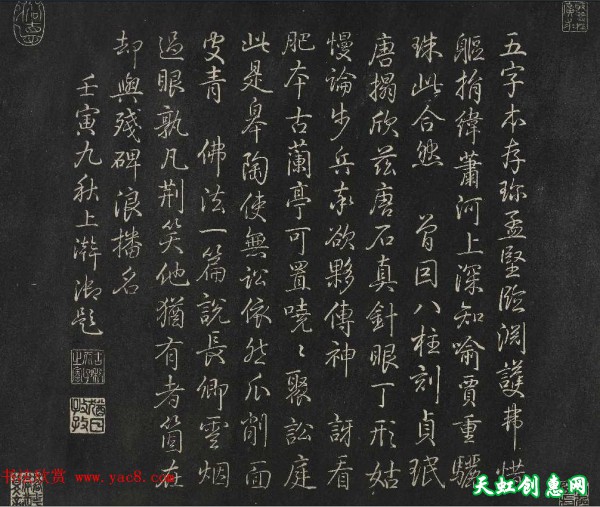 五字本存珎孟堅臨淵護弗惜
軀捐緯蕭河上深知喻賈重驪
珠此合然 曾回八柱刻貞珉
唐搨欣茲唐石真針眼丁形姑
慢論步兵求欲夥傳神 訝看
肥本古蘭亭可置嘵〻聚訟庭
此是皋陶使無訟依然瓜削面
皮青 佛法一篇說長卿雲烟
過眼孰凡荆笑他猶有者箇在
却與殘碑浪播名
壬寅九秋上澣御題
书法欣赏 www.yac8.com
天虹创意网